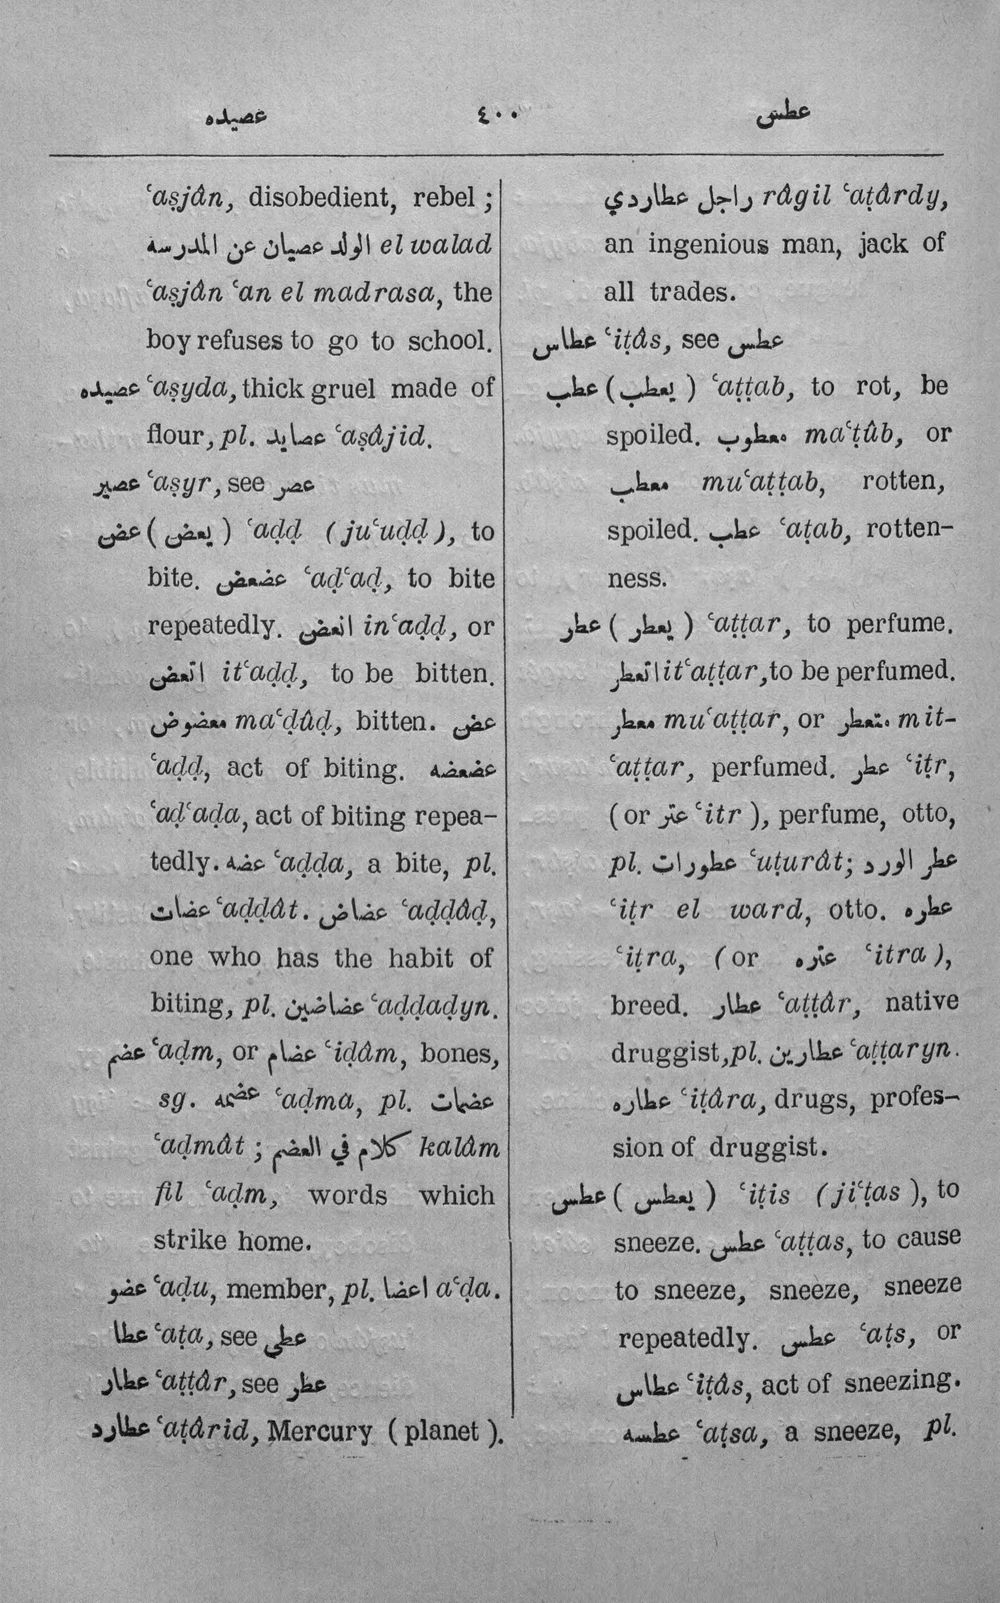 عصيده ٤٠٠ عطس
ʿaṣjân, disobedient, rebel ;
الولد عصيان عن المدرسة el walad
ʿaṣjân ʿan el madrasa, the
boy refuses to go to school.
عصيده ʿaṣyda, thick gruel made of
flour, pl. عصايد ʿaṣâjid.
عصير ʿaṣyr, see عصر
عض (يعض) ʿaḍḍ (juʿuḍḍ), to
bite. عضعض ʿaḍʿaḍ, to bite
repeatedly. انعض inʿaḍḍ, or
اتعض itʿaḍḍ, to be bitten.
معضوض maʿḍûḍ, bitten. عض
ʿaḍḍ, act of biting. عضعضه
ʿaḍʿaḍa, act of biting repea-
tedly. عضه ʿaḍḍa, a bite, pl.
عضات ʿaḍḍât. عضاض ʿaḍḍâḍ,
one who has the habit of
biting, pl. عضاضين ʿaḍḍaḍyn.
عضم ʿaḍm, or عضام ʿiḍâm, bones,
sg. عضمه ʿaḍma, pl. عضمات
ʿaḍmât ; كلام في العضم kalâm
fil ʿaḍm, words which
strike home.
عضو ʿaḍu, member, pl. اعضا aʿḍa.
عطا ʿaṭa, see عطي
عطار ʿaṭṭâr, see عطر
عطارد ʿaṭârid, Mercury (planet).
راجل عطاردي râgil ʿaṭârdy,
an ingenious man, jack of
all trades.
عطاس ʿiṭâs, see عطس
عطب (يعطب) ʿaṭṭab, to rot, be
spoiled. معطوب maʿṭûb, or
معطب muʿaṭṭab, rotten,
spoiled. عطب ʿaṭab, rotten-
ness.
عطر (يعطر) ʿaṭṭar, to perfume.
اتعطر itʿaṭṭar, to be perfumed.
معطر muʿaṭṭar, or متعطر mit-
ʿaṭṭar, perfumed. عطر ʿiṭr,
(or عتر ʿitr), perfume, otto,
pl. عطورات ʿuṭurât; عطر الورد
ʿiṭr el ward, otto. عطره
ʿiṭra, (or عتره ʿitra),
breed. عطار ʿaṭṭâr, native
druggist, pl. عطارين ʿaṭṭaryn.
عطاره ʿiṭâra, drugs, profes-
sion of druggist.
عطس (يعطس) ʿiṭis (jiʿṭas), to
sneeze. عطس ʿaṭṭas, to cause
to sneeze, sneeze, sneeze
repeatedly. عطس ʿaṭs, or
عطاس ʿiṭâs, act of sneezing.
عطسه ʿaṭsa, a sneeze, pl.